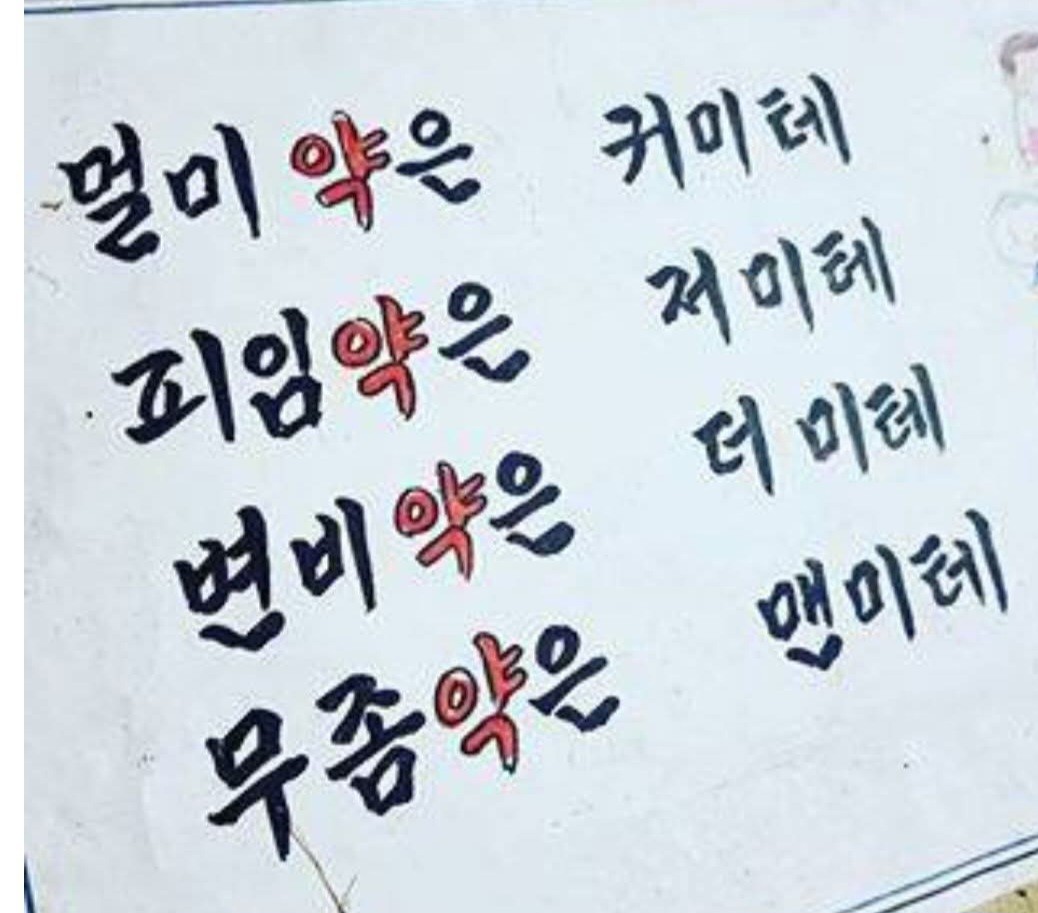 멀미약은 귀미테
피임약은 저미테
변비약은 더 미테
무좀약은 맨미테